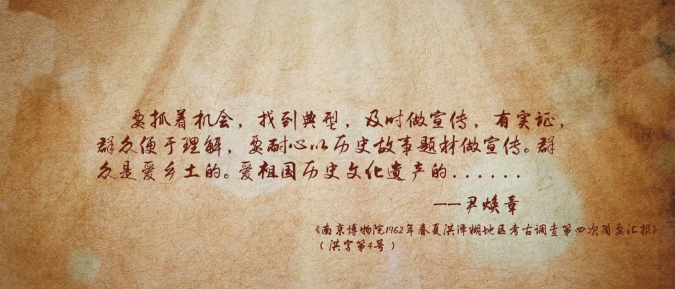 要抓着机会，找到典型，及时做宣传，有实证，
群众便于理解，要耐心以历史故事题材做宣传。群
众是爱乡土的。爱祖国历史文化遗产的......
——尹焕章
《南京博物院1962年春夏洪泽湖地区考古调查第四次简要汇报》
（洪字第4号）